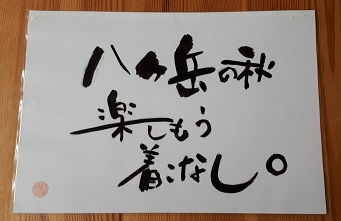 八ヶ岳の秋
楽しもう
着こなし。